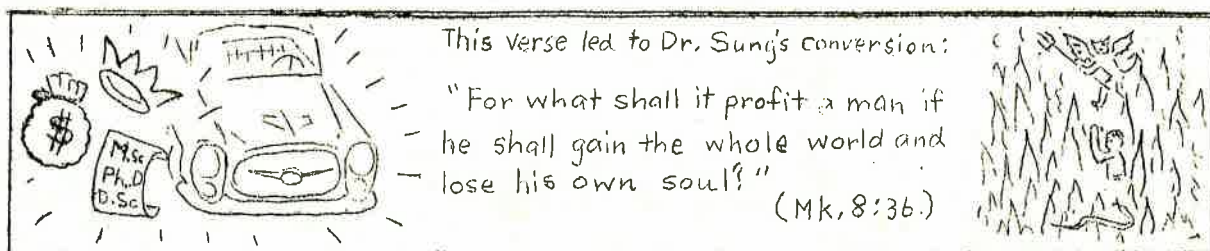 This verse led to Dr. Sung's conversion:
"For what shall it profit a man if
he shall gain the whole world and
lose his own soul?"
(Mk, 8:36.)
$
M.Sc
Ph.D
D.Sc